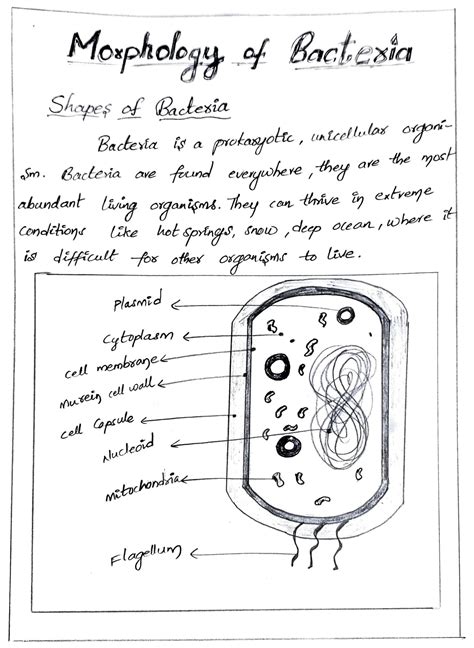 Morphology of Bacteria
Shapes of Bacteria
Bacteria is a prokaryotic, unicellular organi-
sm. Bacteria are found everywhere, they are the most
abundant living organisms. They can thrive in extreme
conditions like hot springs, snow, deep ocean, where it
is difficult for other organisms to live.
Plasmid
Cytoplasm
cell membrane
Murein cell wall
cell Capsule
Nucleoid
Mitochondria
Flagellum